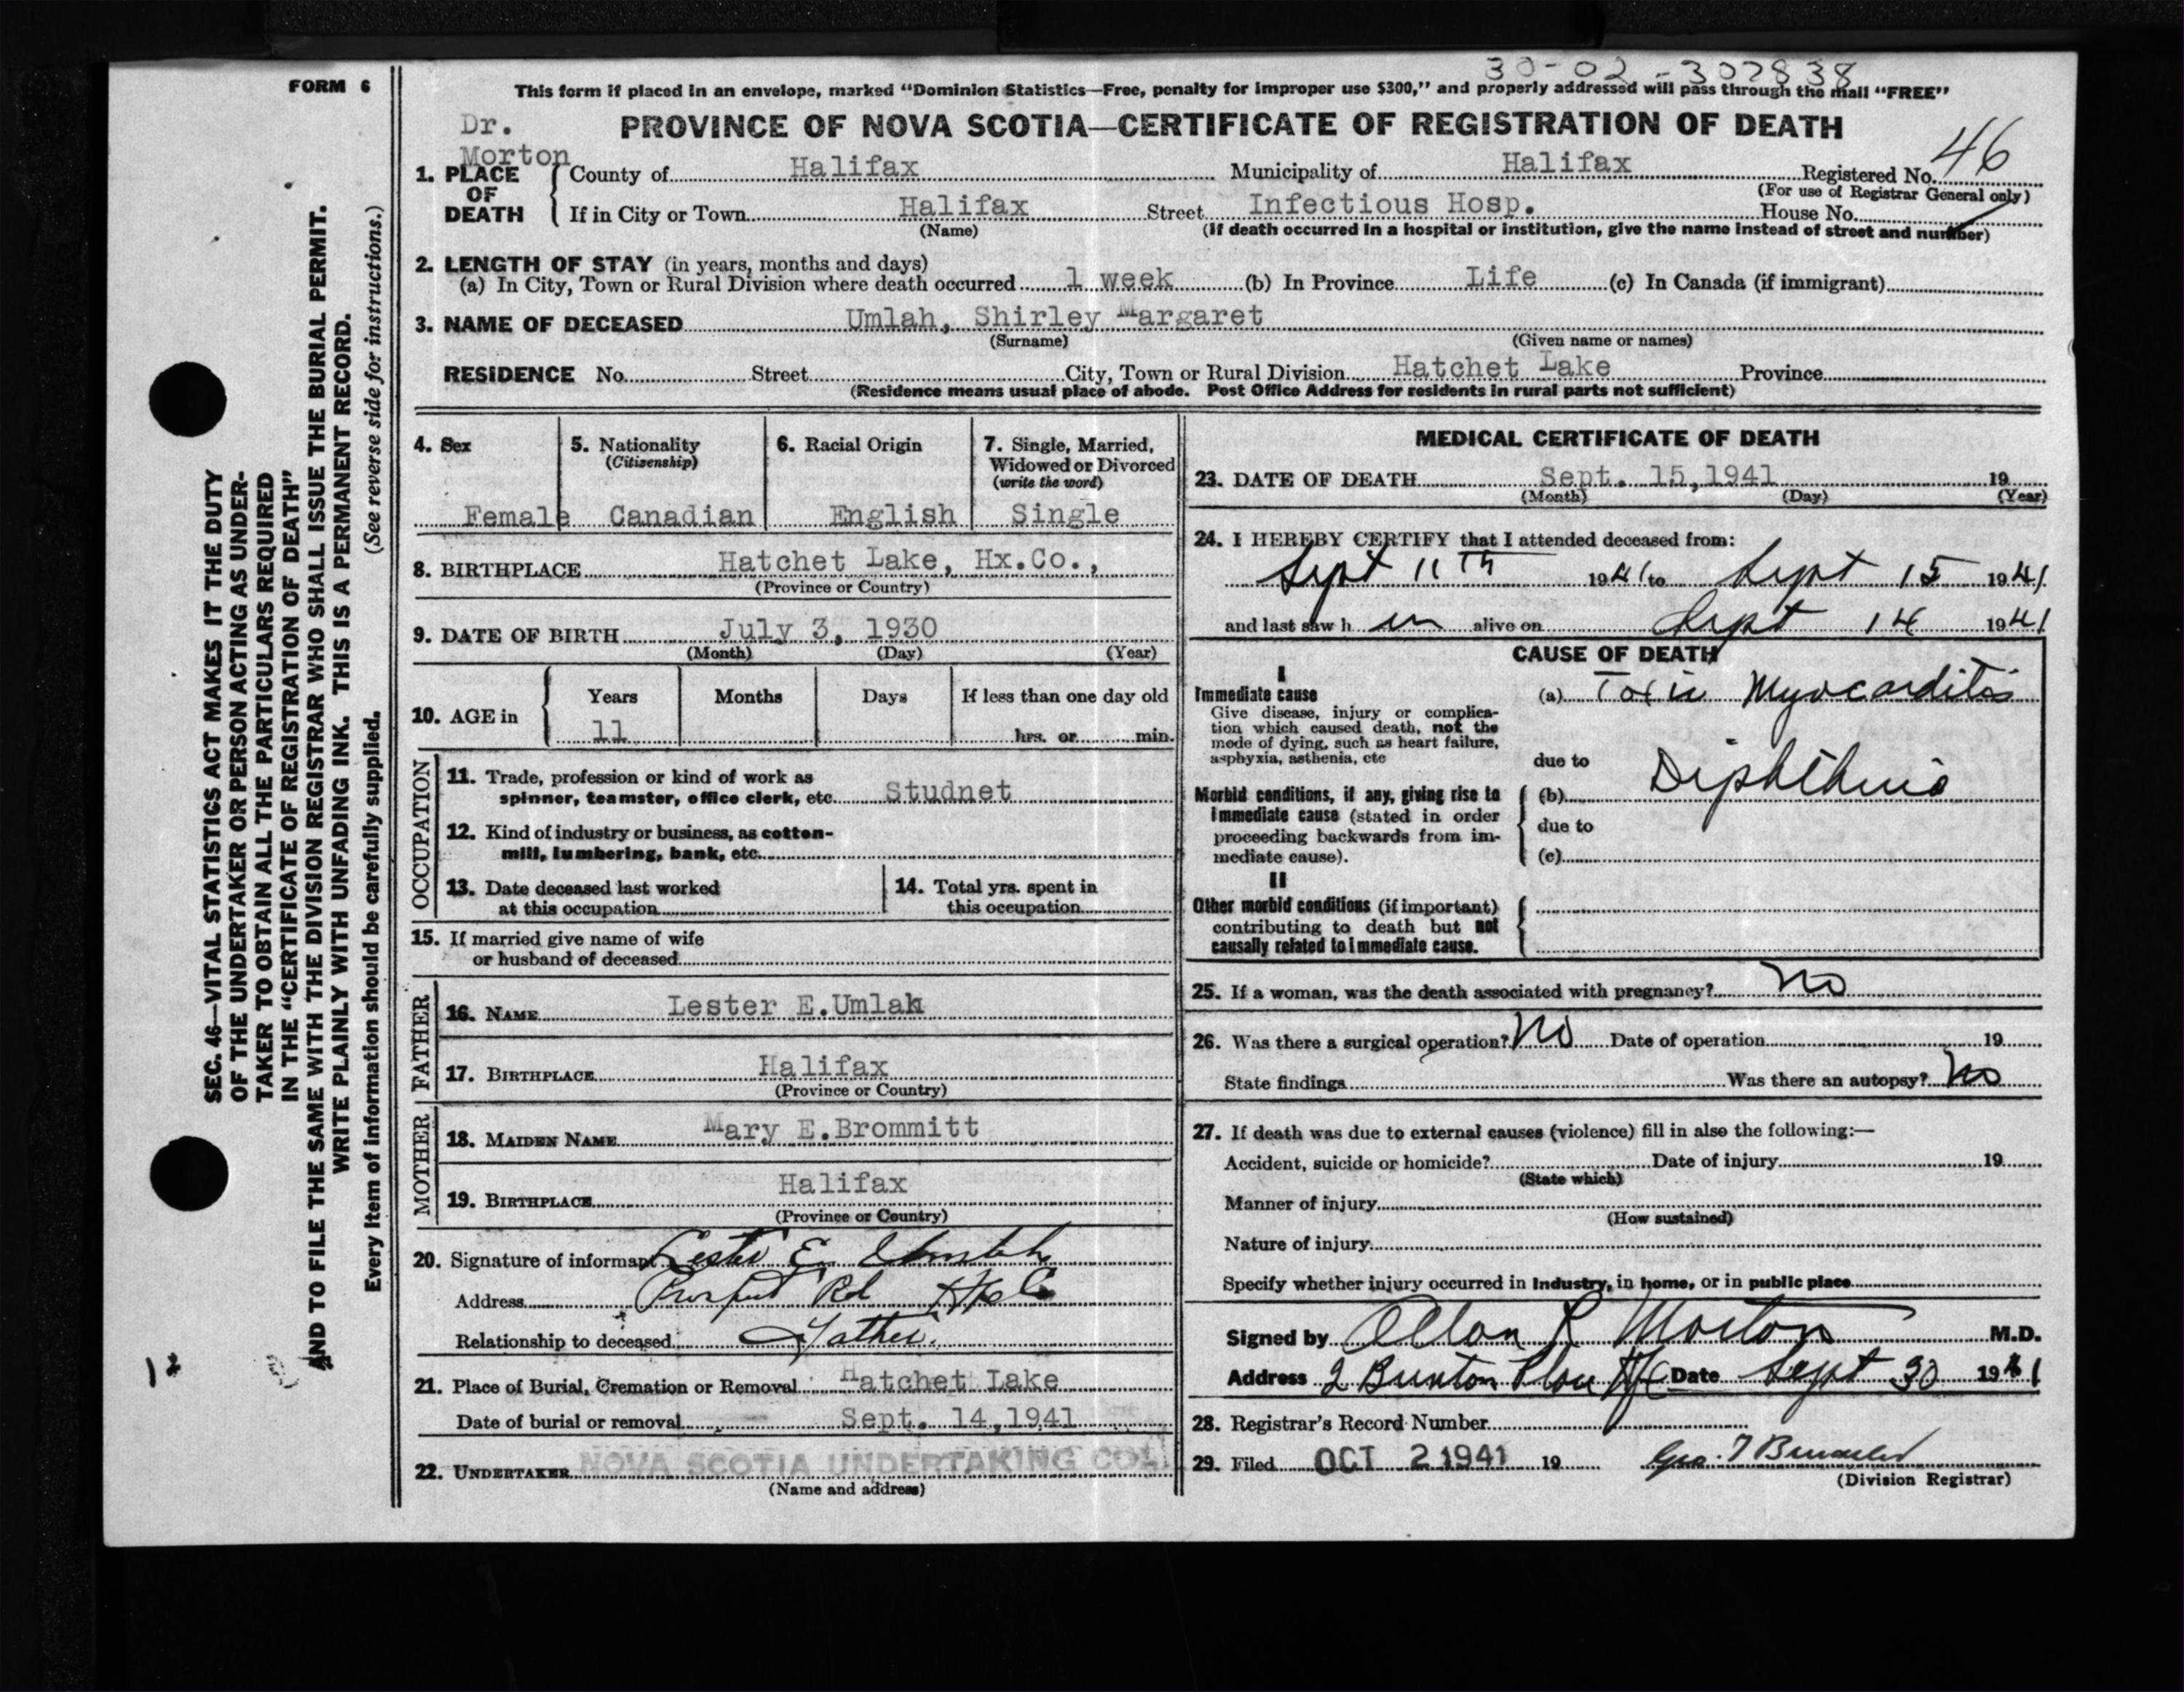 30-02-307838
FORM 6
This form if placed in an envelope, marked “Dominion Statistics—Free, penalty for improper use $300,” and properly addressed will pass through the mail “FREE”
Dr.
Morton
PROVINCE OF NOVA SCOTIA—CERTIFICATE OF REGISTRATION OF DEATH
46
1. PLACE OF DEATH
County of Halifax Municipality of Halifax Registered No.
(For use of Registrar General only)
If in City or Town Halifax Street Infectious Hosp. House No.
(Name) (If death occurred in a hospital or institution, give the name instead of street and number)
2. LENGTH OF STAY (in years, months and days)
(a) In City, Town or Rural Division where death occurred 1 week (b) In Province Life (c) In Canada (if immigrant)
3. NAME OF DECEASED Umlah, Shirley Margaret
(Surname) (Given name or names)
RESIDENCE No. Street City, Town or Rural Division Hatchet Lake Province
(Residence means usual place of abode. Post Office Address for residents in rural parts not sufficient)
4. Sex
Female
5. Nationality
(Citizenship)
Canadian
6. Racial Origin
English
7. Single, Married,
Widowed or Divorced
(write the word)
Single
8. BIRTHPLACE Hatchet Lake, Hx.Co.,
(Province or Country)
9. DATE OF BIRTH July 3, 1930
(Month) (Day) (Year)
10. AGE in
Years Months Days If less than one day old
11 hrs. or min.
OCCUPATION
11. Trade, profession or kind of work as
spinner, teamster, office clerk, etc. Studnet
12. Kind of industry or business, as cotton-
mill, lumbering, bank, etc.
13. Date deceased last worked
at this occupation
14. Total yrs. spent in
this occupation
15. If married give name of wife
or husband of deceased
FATHER
16. NAME Lester E.Umlah
17. BIRTHPLACE Halifax
(Province or Country)
MOTHER
18. MAIDEN NAME Mary E.Brommitt
19. BIRTHPLACE Halifax
(Province or Country)
20. Signature of informant Lester E. Umlah
Address Prospect Rd Hfx Co
Relationship to deceased Father.
21. Place of Burial, Cremation or Removal Hatchet Lake
Date of burial or removal Sept. 14,1941
22. UNDERTAKER NOVA SCOTIA UNDERTAKING CO.
(Name and address)
MEDICAL CERTIFICATE OF DEATH
23. DATE OF DEATH Sept. 15,1941 19
(Month) (Day) (Year)
24. I HEREBY CERTIFY that I attended deceased from:
Sept 11th 1941 to Sept 15 1941
and last saw h er alive on Sept 14 1941
CAUSE OF DEATH
I
Immediate cause
Give disease, injury or complica-
tion which caused death, not the
mode of dying, such as heart failure,
asphyxia, asthenia, etc
(a) Toxic Myocarditis
due to
Morbid conditions, if any, giving rise to
immediate cause (stated in order
proceeding backwards from im-
mediate cause).
(b) Diphtheria
due to
(c)
II
Other morbid conditions (if important)
contributing to death but not
causally related to immediate cause.
25. If a woman, was the death associated with pregnancy? No
26. Was there a surgical operation? No Date of operation 19
State findings Was there an autopsy? No
27. If death was due to external causes (violence) fill in also the following:—
Accident, suicide or homicide? Date of injury 19
(State which)
Manner of injury
(How sustained)
Nature of injury
Specify whether injury occurred in industry, in home, or in public place
Signed by Allan R Morton M.D.
Address 2 Date Sept 30 1941
28. Registrar's Record Number
29. Filed OCT 2 1941 19 Geo. T
(Division Registrar)
SEC. 46—VITAL STATISTICS ACT MAKES IT THE DUTY
OF THE UNDERTAKER OR PERSON ACTING AS UNDER-
TAKER TO OBTAIN ALL THE PARTICULARS REQUIRED
IN THE “CERTIFICATE OF REGISTRATION OF DEATH”
AND TO FILE THE SAME WITH THE DIVISION REGISTRAR WHO SHALL ISSUE THE BURIAL PERMIT.
WRITE PLAINLY WITH UNFADING INK. THIS IS A PERMANENT RECORD.
Every item of information should be carefully supplied. (See reverse side for instructions.)